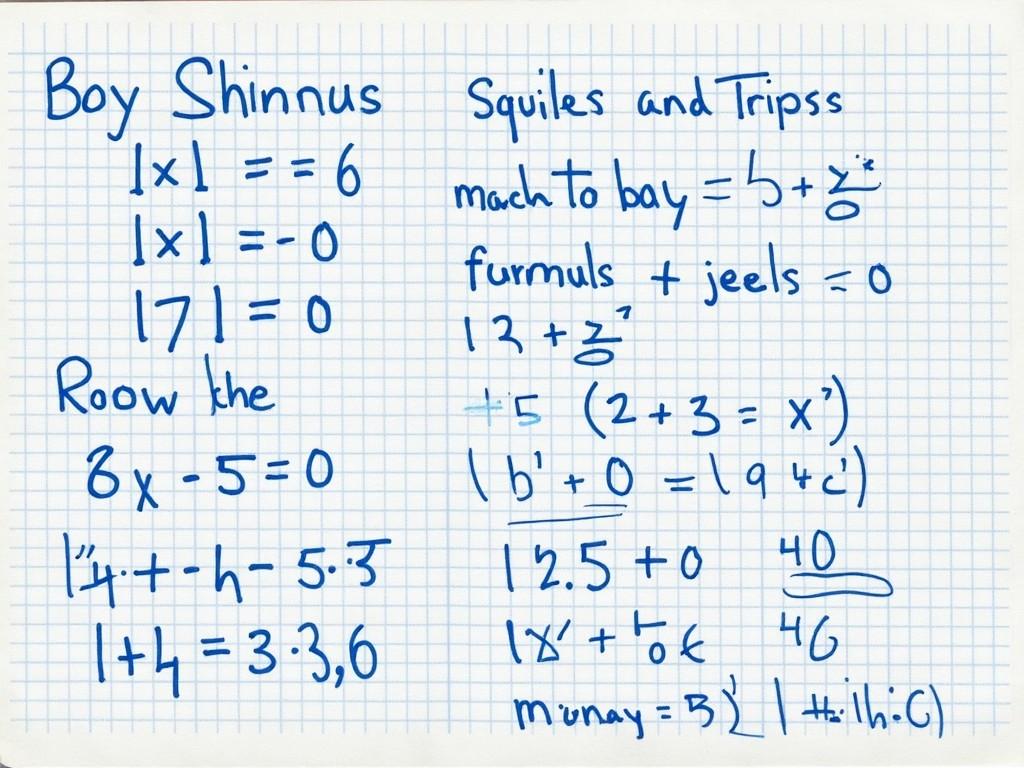 Boy Shinnus
|x| = = 6
|x| = - 0
|7| = 0
Roow khe
8x - 5 = 0
1+4 = 3·3,6
Squiles and Tripss
mach to bay = 5 +
furmuls + jeels = 0
12 +
+5 (2 + 3 = x')
(b' + 0 = 19 4c')
12.5 + 0 40
46
munay =